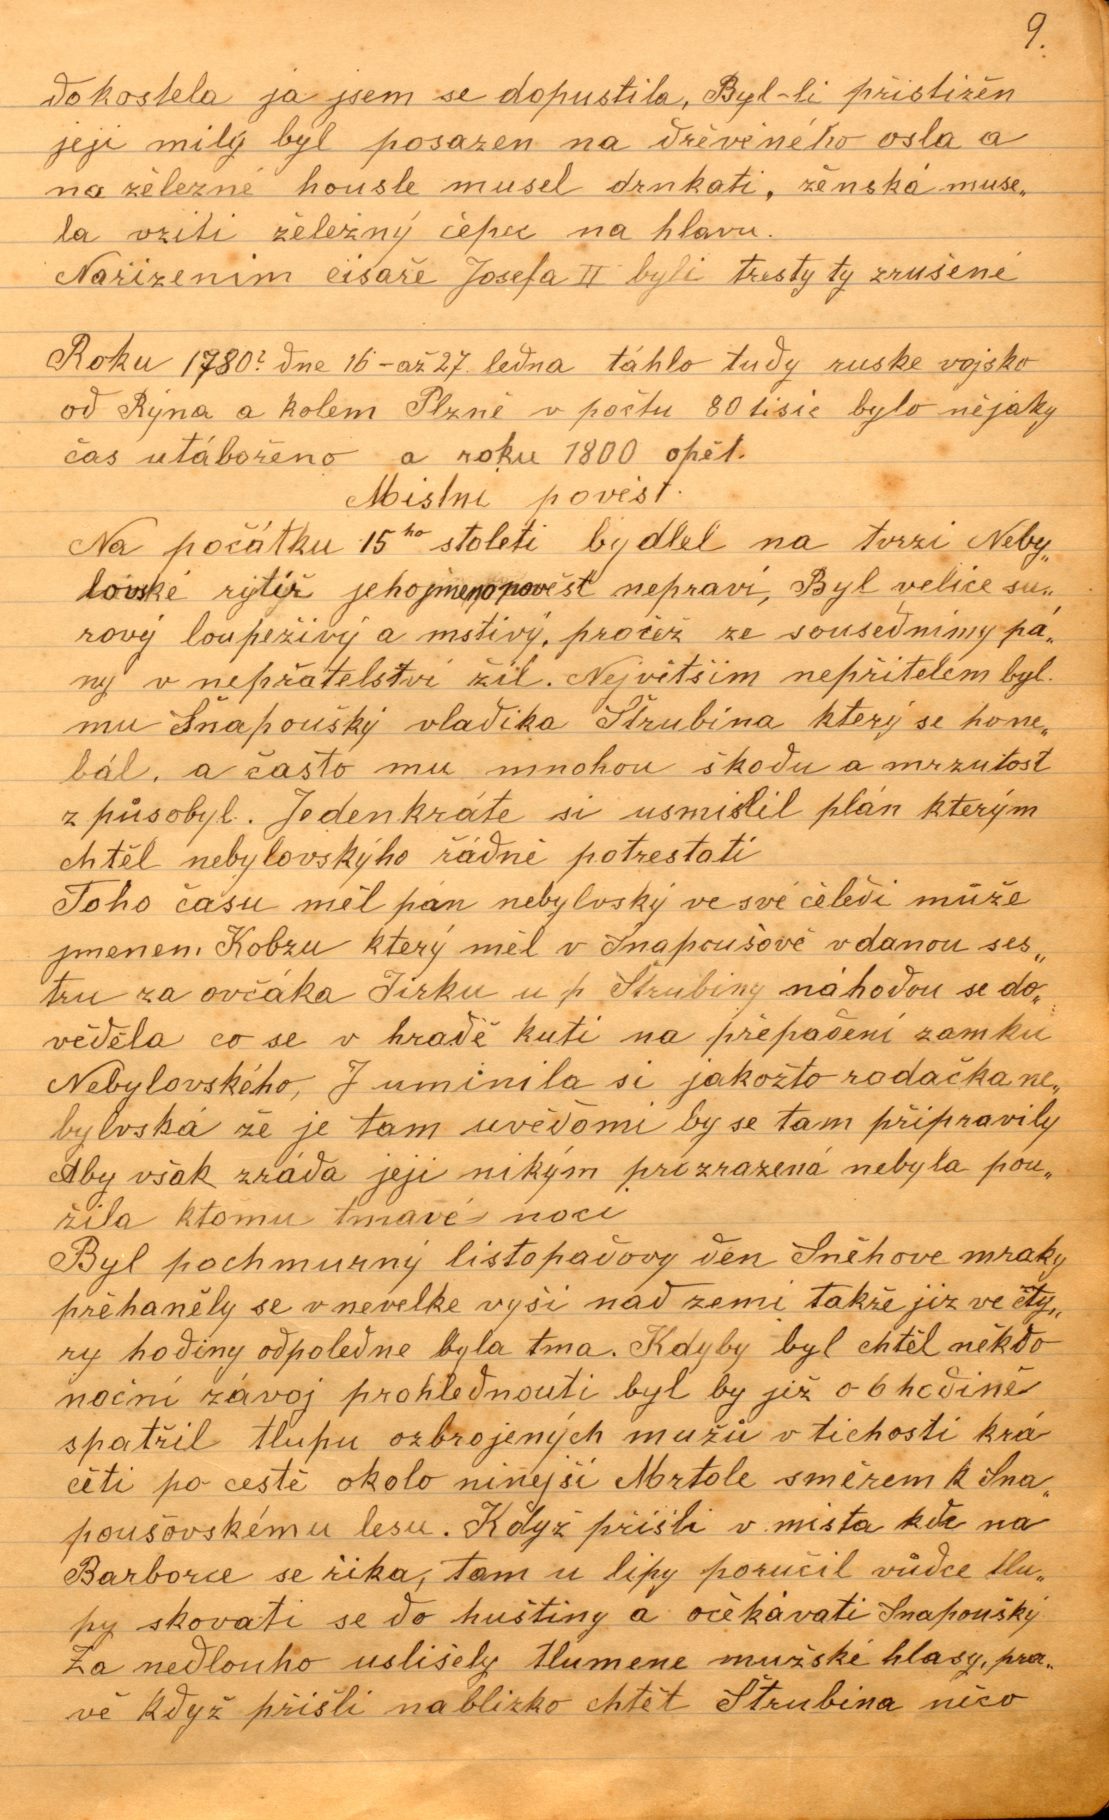 9.
do kostela ja jsem se dopustila, Byl-li přistižěn
jeji milý byl posazen na dřěvěného osla a
na zělezné housle musel drnkati, zěnská muse„
la vziti zěležný čěpec na hlavu.
Nařizenim cisaře Josefa II byli tresty ty zrušené
Roku 1780? dne 16-až 27. ledna táhlo tudy ruske vojsko
od Rýna a kolem Plzně v počtu 80 tisic bylo nějaky
čas utábořeno a roku 1800 opět.
Mistni pověst.
Na počátku 15ho stoleti bydlel na tvrzi Neby„
lovské rytíř jeho jmeno pověst nepraví, Byl velice su„
rový loupeživý a mstivý, pročež ze sousednimy pá„
ny v nepřatelstvi žil. Největšim nepřitelem byl
mu Šnapoušký vladika Štrubina který se hone„
bál, a často mu mnohou škodu a mrzutost
způsobyl. Jedenkráte si usmislil plán kterým
chtěl nebylovskýho řádně potrestati
Toho času měl pán nebylvský ve své čěledi může
jmenem Kobzu který měl v Šnapoušově vdanou ses„
tru za ovčáka Jirku u p Štrubiny náhodou se do„
věděla co se v hradě kuti na přepadení zamku
Nebylovského, J uminila si jakožto rodačka ne„
bylvská žě je tam uvědomi by se tam připravily
Aby však zráda jeji nikým prozrazená nebyla pou„
žila ktomu tmavé noci
Byl pochmurný listopadovy den Sněhove mraky
přěhaněly se v nevelke vyši nad zemi takže již ve čty„
ry hodiny odpoledne byla tma. Kdyby byl chtěl někdo
noční závoj prohlednouti byl by již o 6 hodině
spatřil tlupu ozbrojených mužů v tichosti krá
čěti po cestě okolo ninějši Mrtole směrem k Šna„
poušovskému lesu. Když přišli v mista kde na
Barborce se řika, tam u lipy poručil vůdce tlu„
py skovati se do huštiny a očěkávati Snapoušký
Za nedlouho uslišely tlumene mužské hlasy, pra„
vě když přišli nablizko chtět Štrubina něco